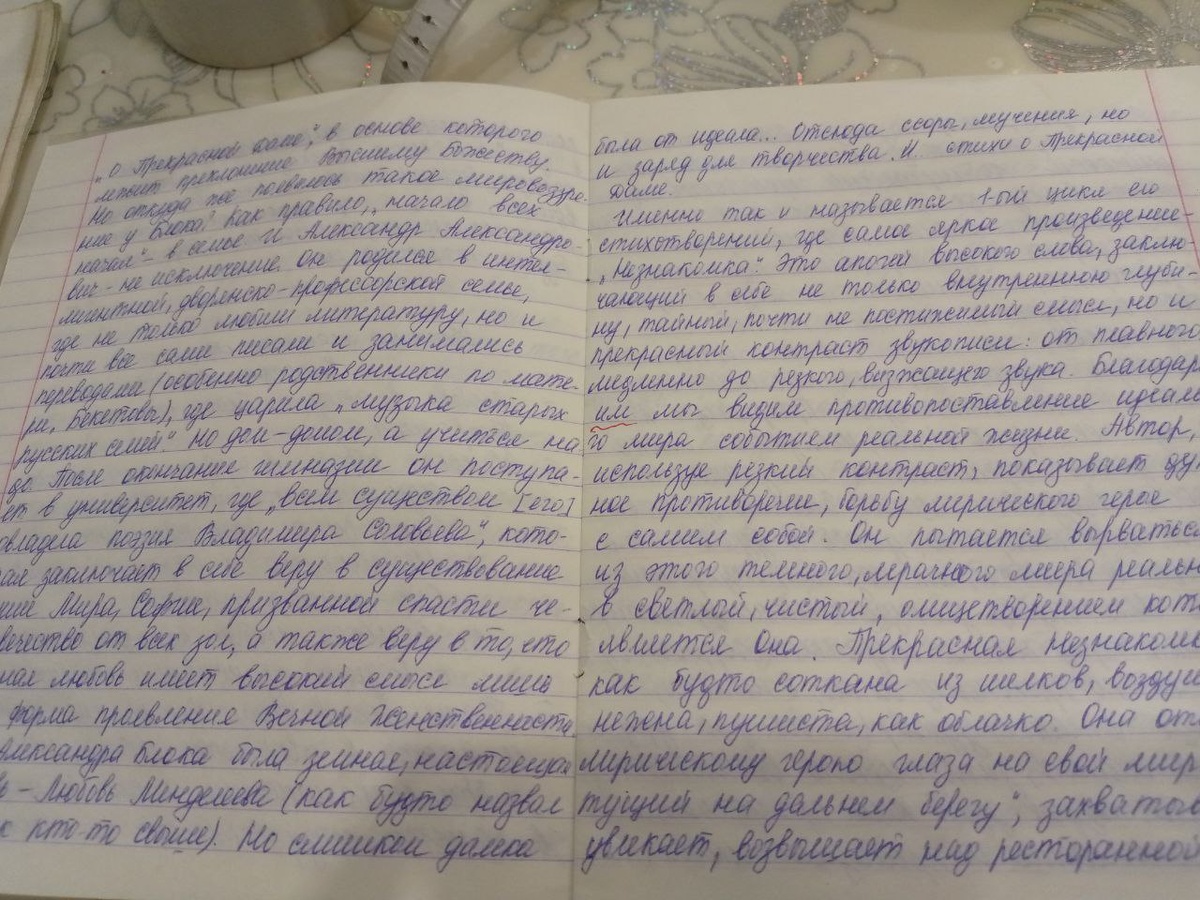 „о Прекрасной даме", в основе которого
лежит преклонение Высшему Божеству.
Но откуда же появилось такое мировоззре-
ние у Блока? Как правило, „начало всех
начал" - в семье. И Александр Александро-
вич - не исключение. он родился в интел-
лигентной, дворянско-профессорской семье,
где не только любили литературу, но и
почти все сами писали и занимались
переводами (особенно родственники по мате-
ри, Бекетовы), где царила „музыка старых
русских семей". Но дом-домом, а учиться на-
до. После окончания гимназии он поступа-
ет в университет, где „всем существом [его]
овладела поэзия Владимира Соловьёва", кото-
рая заключает в себе веру в существование
Мира, Софии, призванной спасти че-
вечество от всех зол, а также веру в то, что
ная любовь имеет высокий смысл лишь
форма проявления Вечной Женственности
Александра Блока была земная, настоящая
ь - Любовь Менделеева (как будто назвал
к кто-то свыше). Но слишком далека
была от идеала... Отсюда ссоры, мучения, но
и заряд для творчества. И стихи о Прекрасной
Даме.
Именно так и называется 1-ый цикл его
стихотворений, где самое яркое произведение-
„Незнакомка". Это апогей высокого слова, заклю-
чающий в себе не только внутреннюю глуби-
ну, тайный, почти не постижимый смысл, но и
прекрасный контраст звукописи: от плавного
медленно до резкого, визжащего звука. Благодар
им мы видим противопоставление идеаль
го мира событиям реальной жизни. Автор,
используя резкий контраст, показывает ду
ное противоречие, борьбу лирического героя
с самим собой. Он пытается вырваться
из этого темного, мрачного мира реальн
в светлой, чистый, олицетворением кот
является Она. Прекрасная незнаком
как будто соткана из шелков, воздуш
нежна, пушиста, как облачко. Она от
лирическому герою глаза на свой мир
тущий на дальнем берегу", захватыв
увлекает, возвышает над ресторанной